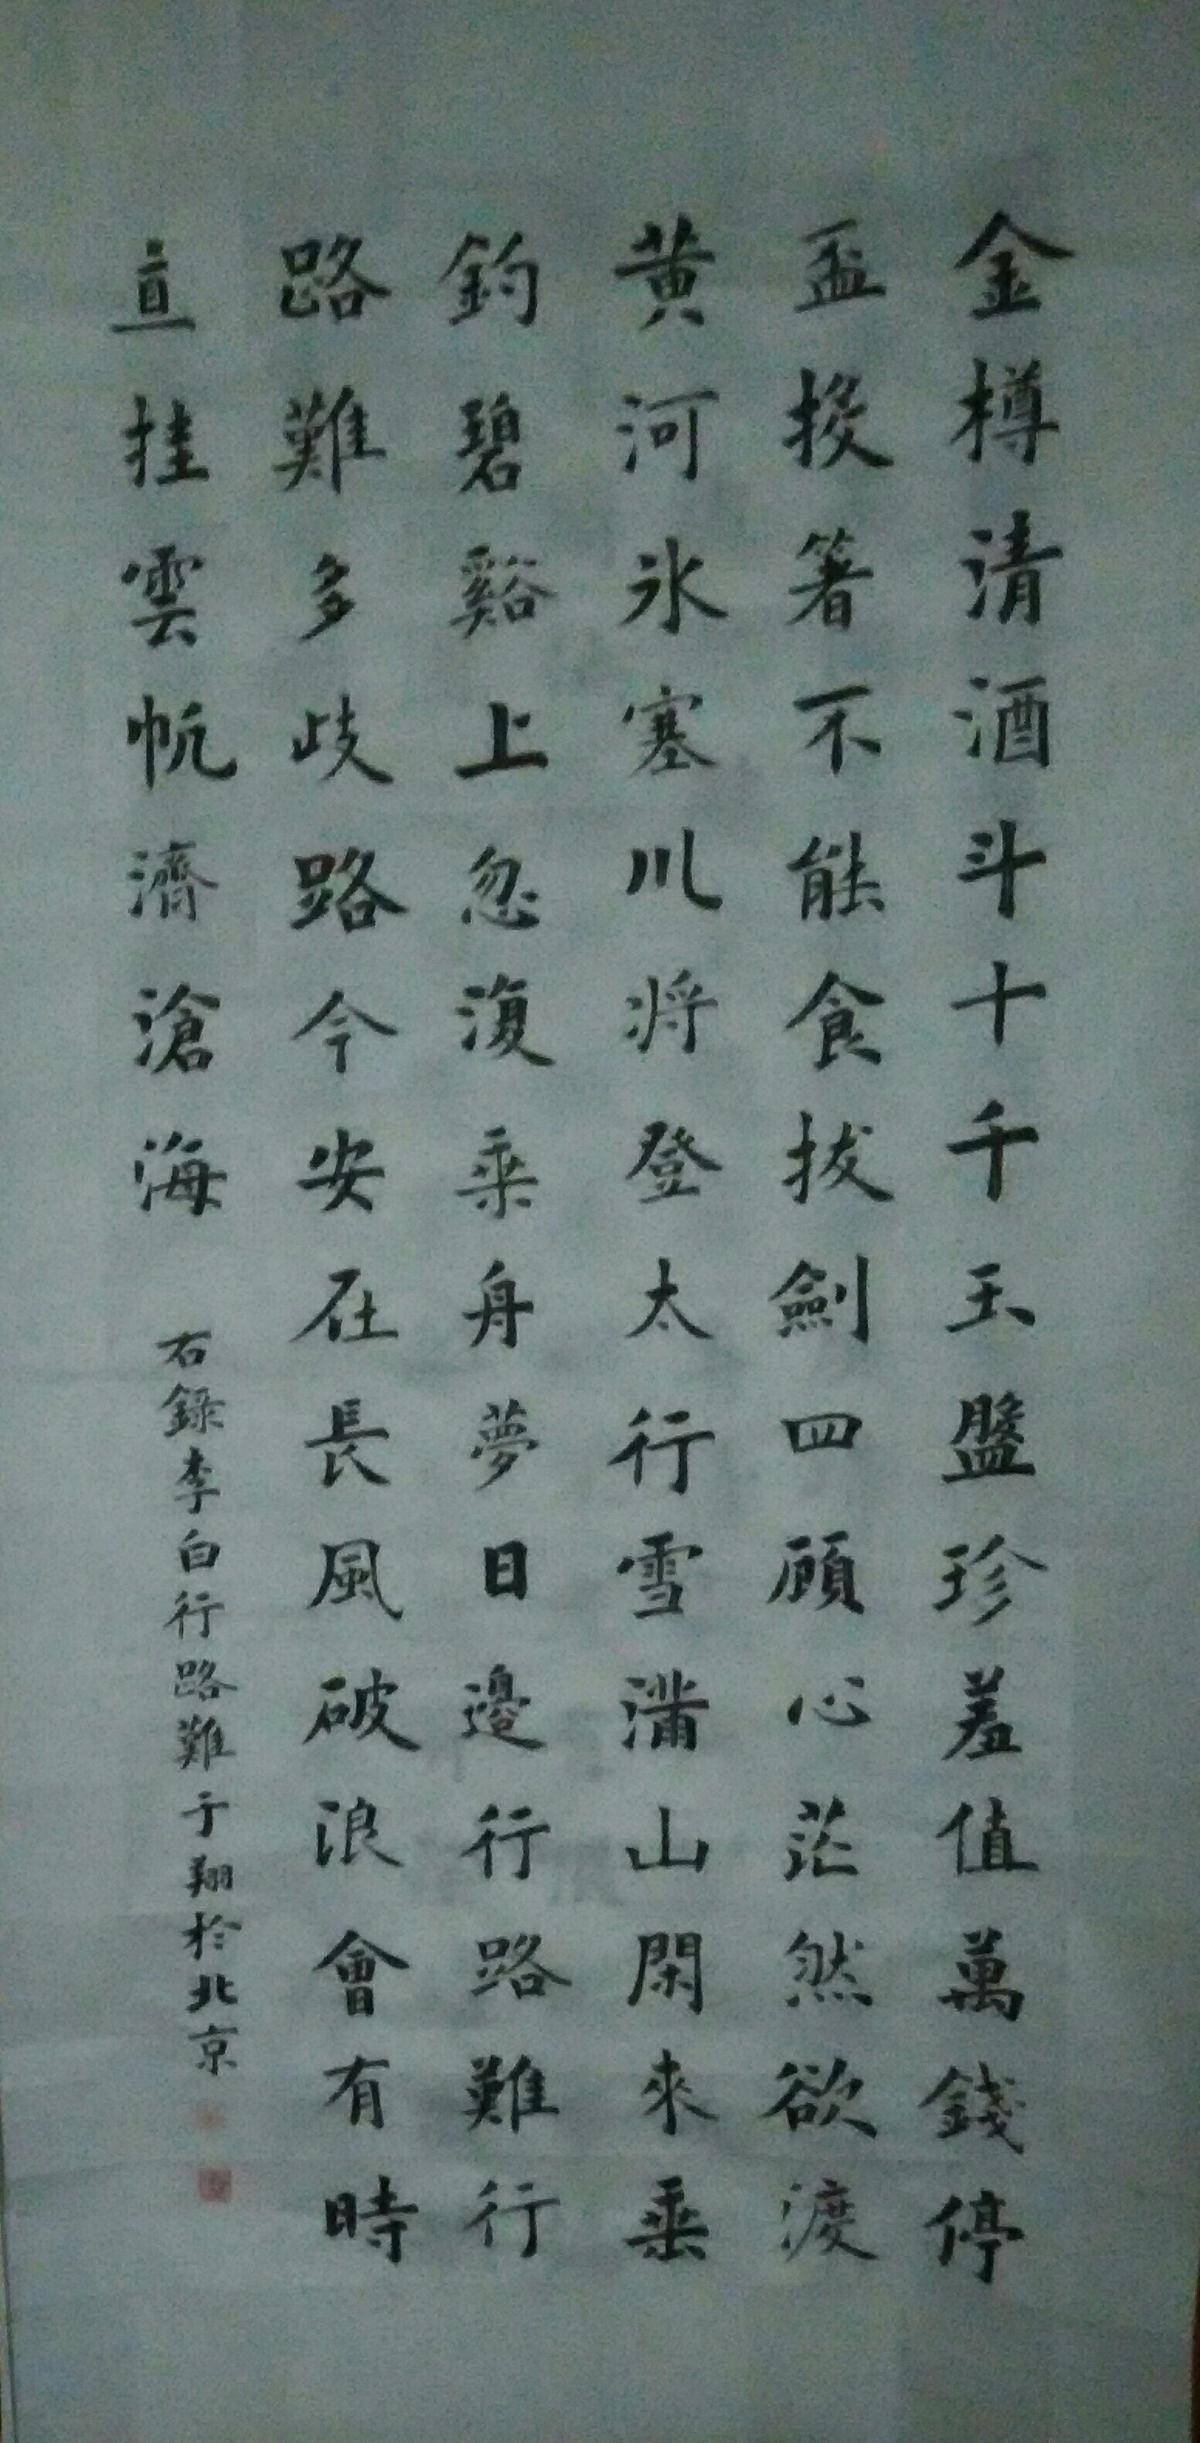 金樽清酒斗十千玉盤珍羞值萬錢停
盃投箸不能食拔劍四顧心茫然欲渡
黄河氷塞川将登太行雪滿山閑來垂
釣碧谿上忽復乘舟夢日邊行路難行
路難多歧路今安在長風破浪會有時
直挂雲帆濟滄海
右錄李白行路難于翔於北京